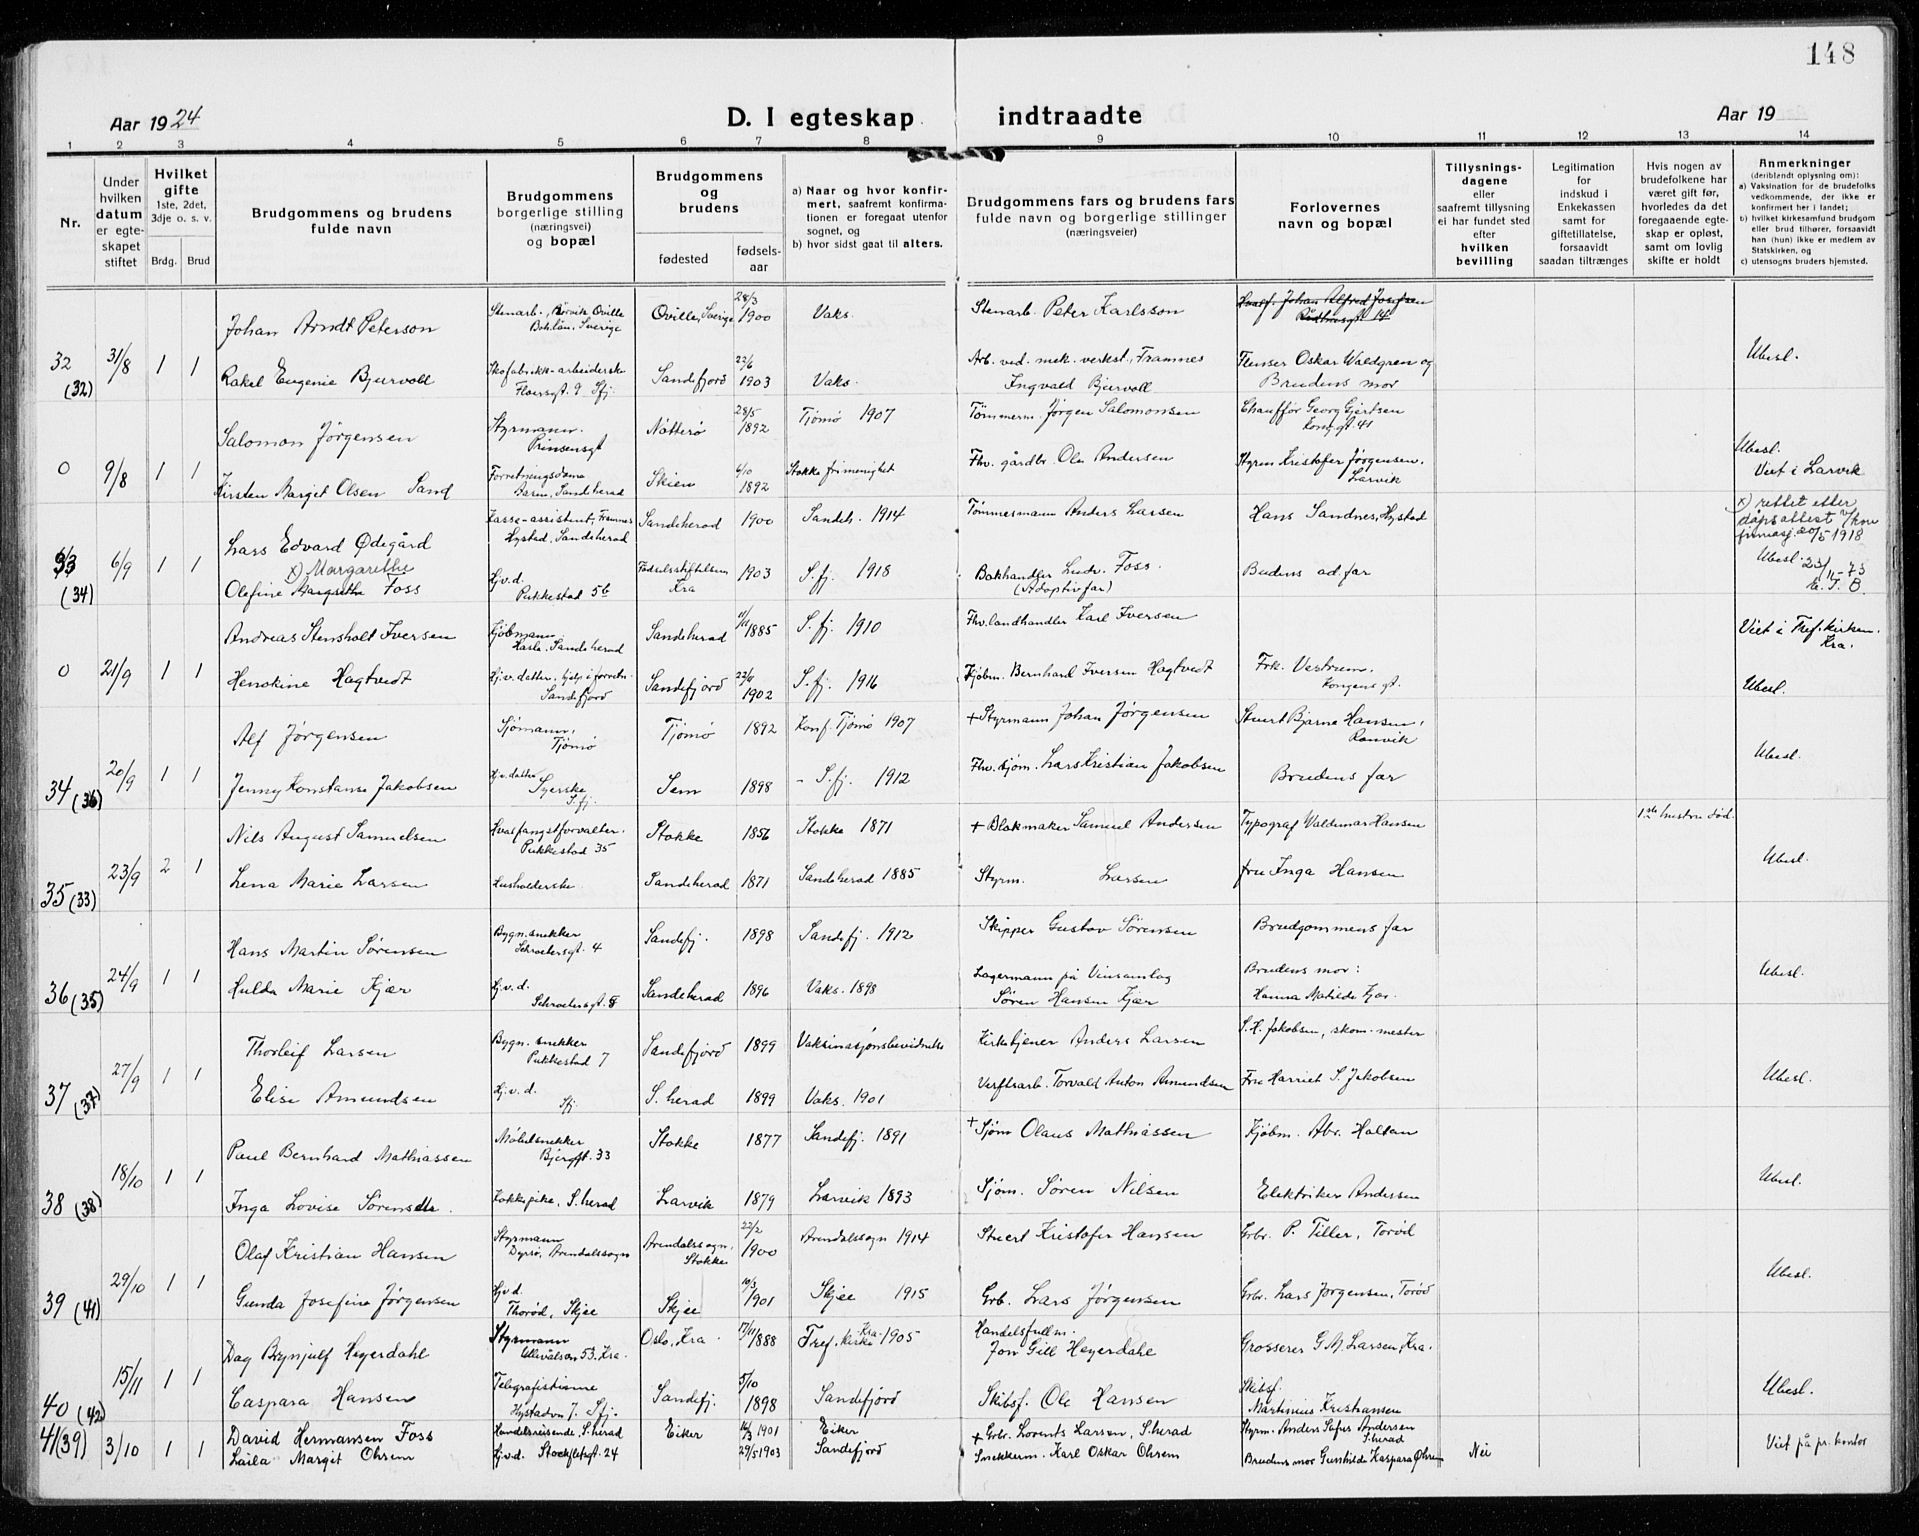 148
Aar 1924
D. I egteskap indtraadte
Aar 19
1 2 3 4 5 6 7 8 9 10 11 12 13 14
Nr.
Under hvilken datum er egteskapet stiftet
Hvilket gifte 1ste, 2det, 3dje o. s. v.
Brdg. Brud
Brudgommens og brudens fulde navn
Brudgommens borgerlige stilling (næringsvei) og bopæl
Brudgommens og brudens
fødested
fødsels-aar
a) Naar og hvor konfirmert, saafremt konfirmationen er foregaat utenfor sognet, og
b) hvor sidst gaat til alters.
Brudgommens fars og brudens fars fulde navn og borgerlige stillinger (næringsveier)
Forlovernes navn og bopæl
Tillysningsdagene eller saafremt tillysning ei har fundet sted efter hvilken bevilling
Legitimation for indskud i Enkekassen samt for giftetillatelse, forsaavidt saadan tiltrænges
Hvis nogen av brudefolkene har været gift før, hvorledes da det foregaaende egteskap er opløst, samt om lovlig skifte er holdt
Anmerkninger (deriblandt oplysning om):
a) Vaksination for de brudefolks vedkommende, der ikke er konfirmert her i landet;
b) hvilket kirkesamfund brudgom eller brud tilhører, forsaavidt han (hun) ikke er medlem av Statskirken, og
c) utensogns bruders hjemsted.
Johan Arndt Peterson Stenarb., Rørvik Oville Bohlän, Sverige Oville, Sverige 28/3 1900 Vaks. Stenarb. Peter Karlsson Hvalf. Johan Alfred Josefsen Rådhusgt 14
32 (32) 31/8 1 1 Rakel Eugenie Bjurvoll Skofabrikk-arbeiderske Floersgt. 9 Sfj. Sandefjord 23/6 1903 Vaks. Arb. ved. mek. verkst., Framnes Ingvald Bjurvoll Flenser Oskar Waldgren og Brudens mor Ubesl.
Salomon Jørgensen Styrmann. Prinsensgt Nøtterø 28/5 1892 Tjømø 1907 Tømmerm. Jørgen Salomonsen Chauffør Georg Gjertsen Kongsgt 41
0 9/8 1 1 Kirsten Marget Olsen Sand Forretningsdame Sandeherad Skien 6/10 1892 Stokke frimenighet Fhv. gårdbr. Ole Andersen Styrm Kristofer Jørgensen, Larvik Ubesl. Viet i Larvik
Lars Edvard Ødegård Kasse-assistent, Framnes Hystad, Sandeherad Sandeherad 1900 Sandeh. 1914 Tømmermann Anders Larsen Hans Sandnes, Hystad x) rettet etter dåpsattest 20/5 1918
33 (34) 6/9 1 1 x) Margarethe Olefine Margretha Foss Hj.v.d. Pukkestad 56 Fødselsstiftelsen Kra 1903 S.fj. 1918 Bokhandler Ludv. Foss. (Adoptivfar) Budens ad.far Ubesl. 23/11-73 E. T. B.
Andreas Stensholt Iversen Kjøbmann Hasle, Sandeherad Sandeherad 11/11 1885 S.fj. 1910 Fhv. landhandler Karl Iversen Viet i Tref.kirken. Kra.
0 21/9 1 1 Henskine Hagtvedt Hj.v.datter, hjelp i forretn. Sandefjord Sandefjord 22/6 1902 S.fj. 1916 Kjøbm. Bernhard Iversen Hagtvedt Frk. Vestrum. Kongens gt. Ubesl.
Alf Jørgensen Sjømann, Tjømø Tjømø 1892 Konf. Tjømø 1907 + Styrmann Johan Jørgensen Stuert Bjarne Hansen, Ranvik
34 (36) 20/9 1 1 Jenny Konstanse Jakobsen Hj.v.datter Syerske S.fj. Sem 1898 - S.fj. 1912 Fhv. sjøm. Lars Kristian Jakobsen Brudens far Ubesl.
Nils August Samuelsen Hvalfangstforvalter. Pukkestad 35 Stokke 1856 Stokke 1871 + Blokmaker Samuel Andersen Typograf Waldemar Hansen 1ste hustru død.
35 (33) 23/9 2 1 Lena Marie Larsen Husholderske Sandeherad 1871 Sandeherad 1885 Styrm. Larsen fru Inga Hansen Ubesl.
Hans Martin Sørensen Bygn.snekker Schrotersgt. 4 Sandefj. 1898 Sandefj. 1912 Skipper Gustav Sørensen Brudgommens far
36 (35) 24/9 1 1 Hulda Marie Kjær Hj.v.d. Schrotersgt. 8 Sandeherad 1896 Vaks. 1898 Lagermann på Vinsamlag Søren Hansen Kjær Brudens mor: Hanna Matilde Kjær. Ubesl.
Thorleif Larsen Bygn. snekker Pukkestad 7 Sandefjord 1899 Vaksinasjonsbevidnelse Kirketjener Anders Larsen S. H. Jakobsen, skom.-mester
37 (37) 27/9 1 1 Elise Amundsen Hj.v.d. Sfj. S. herad 1899 Vaks. 1901 Verftsarb. Torvald Anton Amundsen Fru Harriet S. Jakobsen Ubesl.
Paul Bernhard Mathiassen Møbelsnekker Bjergt. 33 Stokke 1877 Sandefj. 1891 + Sjøm Olaus Mathiassen Kjøbm. Abr. Holtan
38 (38) 18/10 1 1 Inga Lovise Sørensen. Kokkepike, S.herad Larvik 1879 Larvik 1893 Sjøm. Søren Nilsen Elektriker Andersen Ubesl.
Olaf Kristian Hansen Styrmann Dyrsø, Arendalssogn Arendalssogn, Stokke 22/2 1900 Arendalssogn 1914 Stuert Kristofer Hansen Grbr. P. Tiller, Torød
39 (41) 29/10 1 1 Gunda Josefine Jørgensen Hjv d. Thorød, Skjee Skjee 10/3 1901 Skjee 1915 Grb. Lars Jørgensen Grbr. Lars Jørgensen, Torød Ubesl.
Dag Brynjulf Heyerdahl Styrmann Ullevålsvn 53. Kra. Oslo, Kra. 17/11 1888 Tref. kirke Kra. 1905 Handelsfullm. Jon Gill Heyerdahl Grosserer G. M. Larsen, Kra.
40 (42) 15/11 1 1 Caspara Hansen Telegrafistinne Hystadvn 7. Sfj. Sandefj. 5/10 1898 Sandefjord Skibsf. Ole Hansen Skibsf. Martinius Kristiansen Ubesl.
41 (39) 3/10 1 1 David Hermansen Foss Handelsreisende S.herad Eiker 16/3 1901 Eiker + Grbr. Lorents Larsen, S.herad Styrm. Anders Andersen S.herad Viet på pr. kontor
Laila Margit Ohrem Hj.v.d. Stockfletsgt. 24 29/5 1903 Sandefjord Snekkerm. Karl Oskar Ohrem Brudens mor Gunhilde Kaspara Øhrem Nei